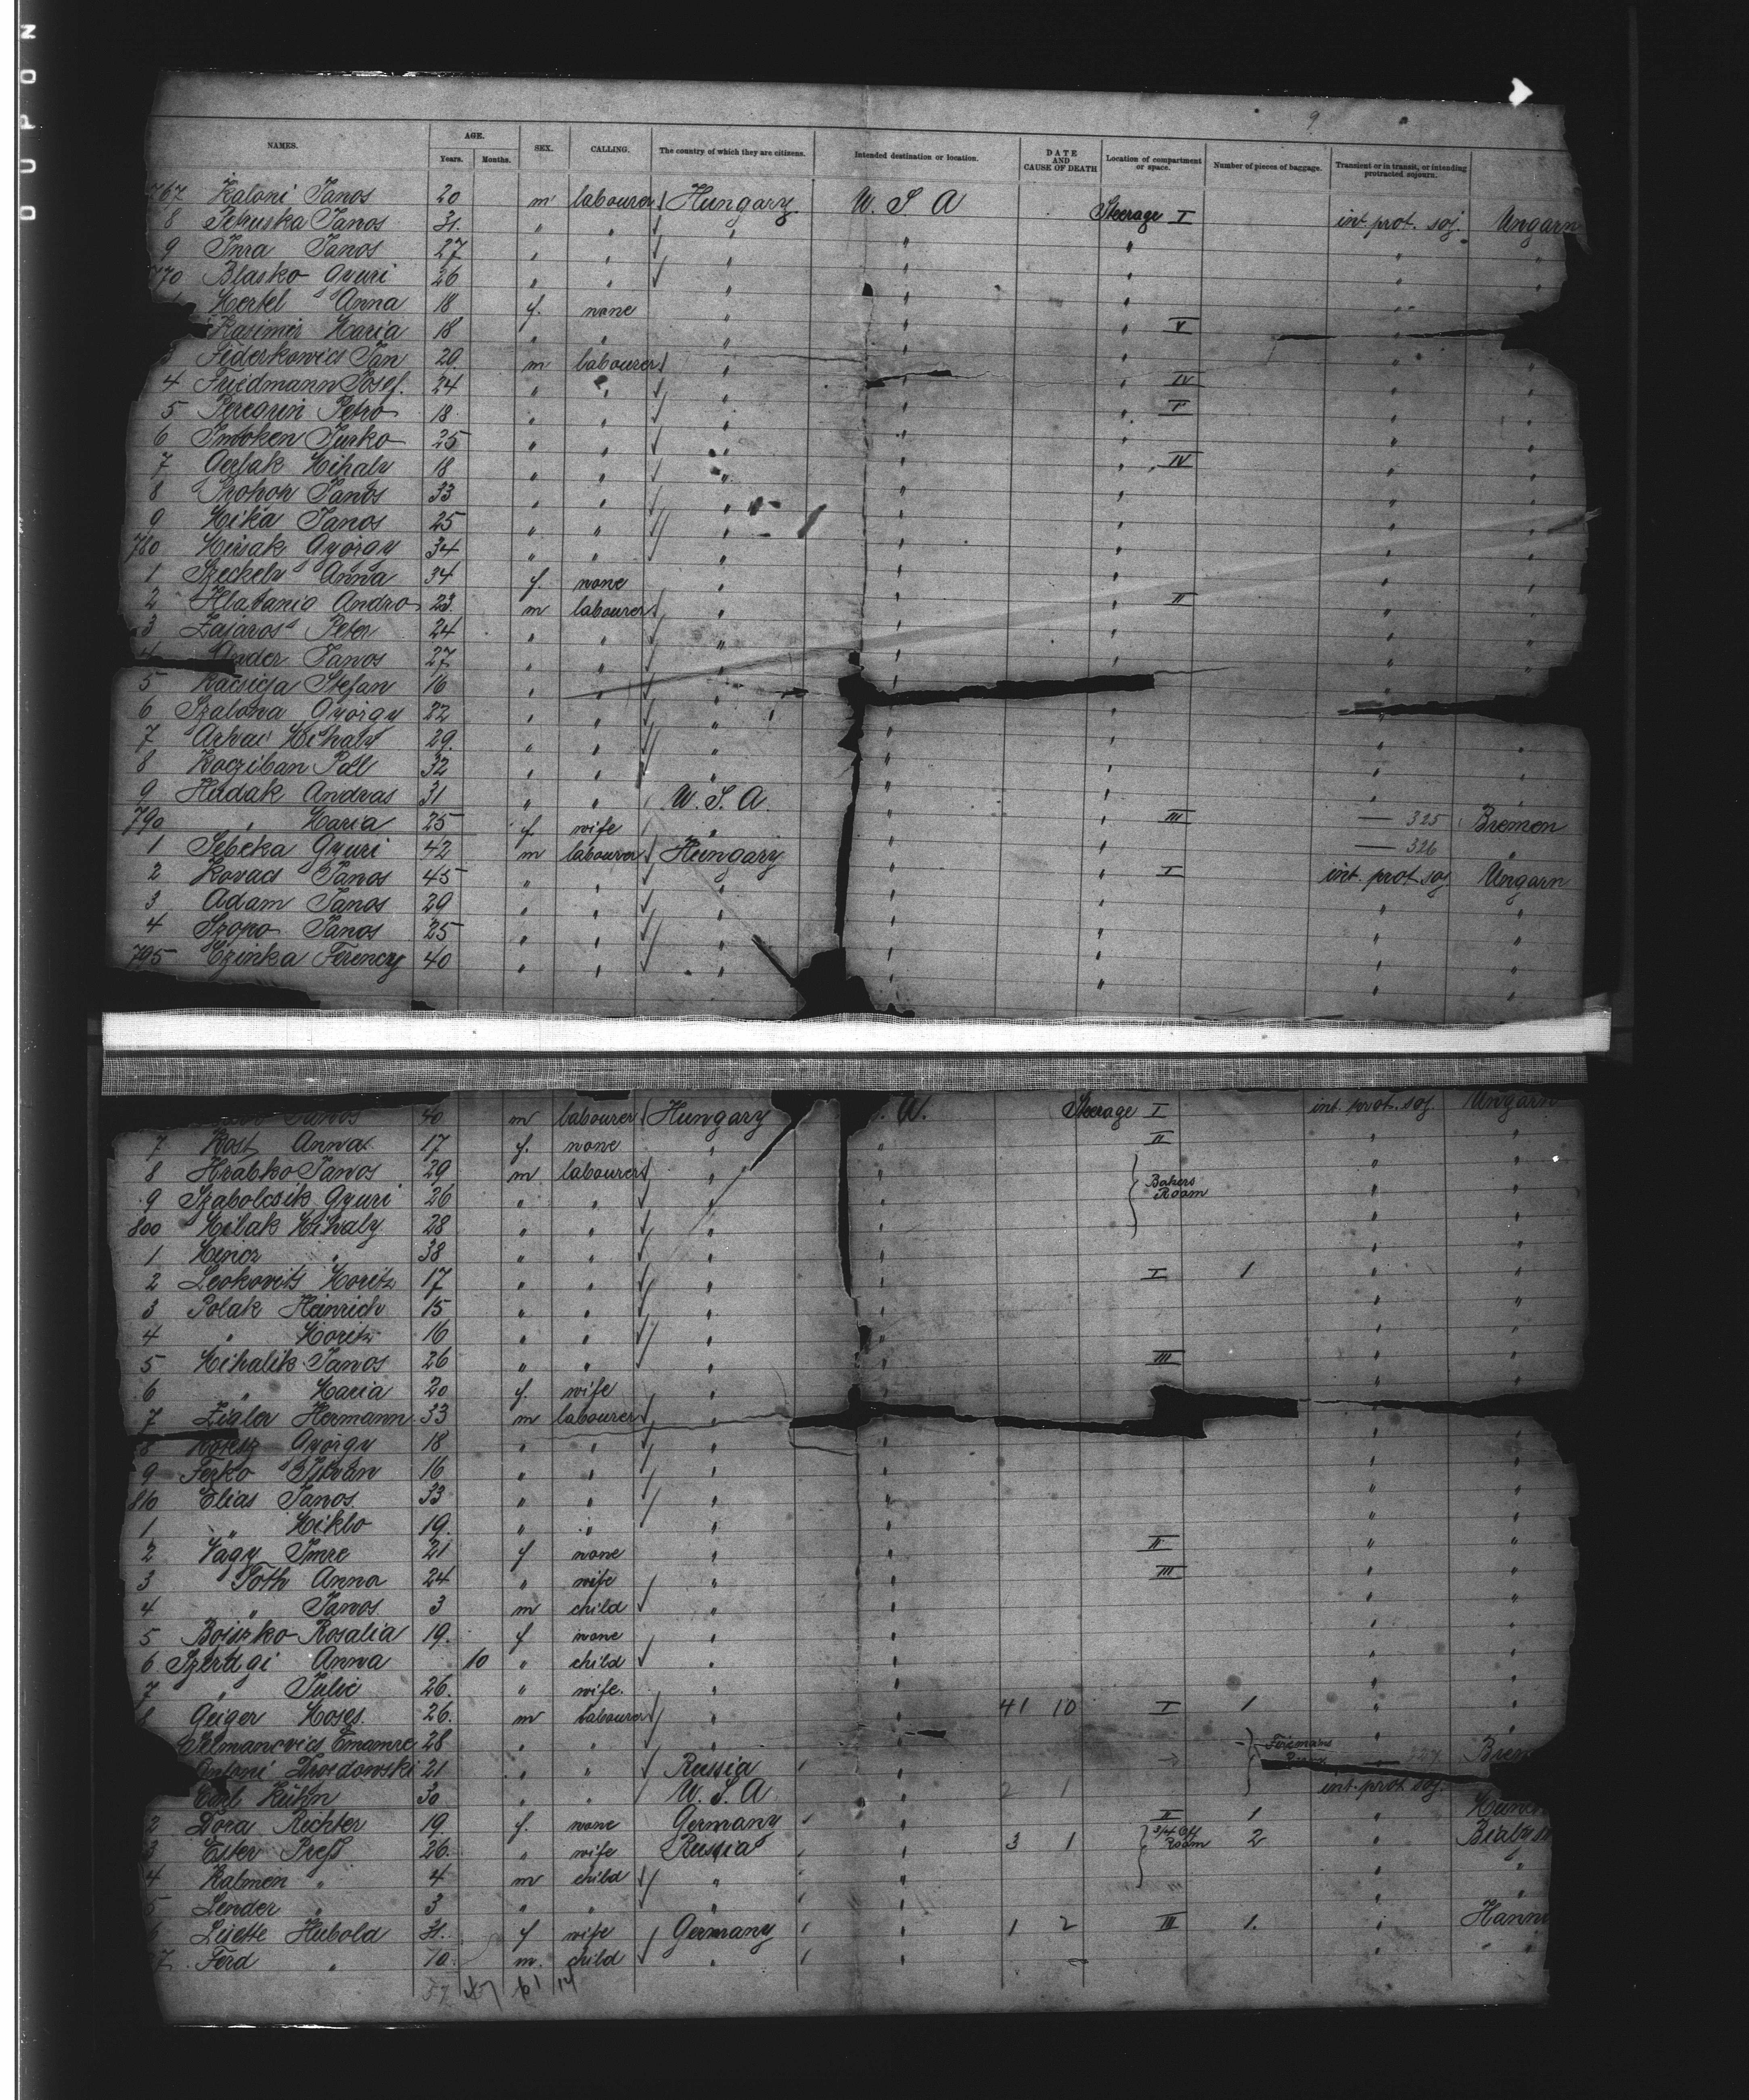 NOPUO
9
NAMES. AGE. Years. Months. SEX. CALLING. The country of which they are citizens. Intended destination or location. DATE AND CAUSE OF DEATH Location of compartment or space. Number of pieces of baggage. Transient or in transit, or intending protracted sojourn.
767 Kaloni Janos 20 m labourer Hungary U. S. A Steerage I int. prot. soj. Ungarn
8 Petruska Janos 31. " " " " " " "
9 Janos 27 " " " " " " "
770 Blasko Gyuri 26 " " " " " " "
Hertel Anna 18 f. none " " " " "
Kasimir Maria 18 " " " " " V " "
Fiderkowics Jan 20 m labourer " " " " "
4 Friedmann Josef. 24 " " " " " IV " "
5 Peregrin Petro 18 " " " " " V " "
6 Smoken Jurko 25 " " " " " " "
7 Gerlak Mihaly 18 " " " " " IV " "
8 Prohor Janos 33 " " " " " " "
9 Mika Janos 25 " " " " " " "
780 Mirsak György 34 " " " " " " "
1 Szeckely Anna 34 f. none " " " " "
2 Hlatania Andro 23. m labourer " " " II " "
3 Lazaros Peter 24 " " " " " " "
4 Ander Janos 27 " " " " " " "
5 Kacsicsa Stefan 16 " " " " " " "
6 Szalona György 22 " " " " " " "
7 Arvai Mihaly 29. " " " " " " "
8 Kocziban Pall 32 " " " " " " "
9 Hudak Andras 31 " " U. S. A. " " "
790 " Maria 25 f wife " " " III — 325 Bremen
1 Sebeka Gyuri 42 m labourer Hungary " " — 326 "
2 Kovacs Janos 45 " " " " " I int. prot. soj. Ungarn
3 Adam Janos 29 " " " " " " "
4 Szopo Janos 25 " " " " " " "
795 Czinka Ferencz 40 " " " " " " "
Janos 40 m labourer Hungary . A. Steerage I int. prot. soj. Ungarn
7 Kost Anna 17 f. none " " II " "
8 Hrabko Janos 29 m labourer " " Bakers Room " "
9 Szabolcsik Gyuri 26 " " " " " "
800 Milak Mihaly 28 " " " " " "
1 " 38 " " " " " "
2 Leokovits Moritz 17 " " " " I 1 " "
3 Polak Heinrich 15 " " " " " "
4 " Moritz 16 " " " " " "
5 Mihalik Janos 26 " " " " III " "
6 " Maria 20 f. wife " " " "
7 Zigler Hermann 33 m labourer " " " "
8 György 18 " " " " " "
9 Ferko Istvan 16 " " " " " "
810 Elias Janos. 33 " " " " " "
1 " Miklo 19. " " " " " "
2 Vagy Imre 21 f none " " II " "
3 Toth Anna 24 " wife " " III " "
4 " Janos. 3 m child " " " "
5 Boiszko Rosalia 19. f none " " " "
6 Szerdgi Anna 10 " child " " " "
7 " Julie 26. " wife. " " " "
8 Geiger Moses. 26. m labourer " " 41 10 I 1 " "
Welmanovics Emanue 28 " " " " Firemans Room
Antoni Drosdowski 21 " " Russia " — 327 Brem
Carl Kühn 30 " " U. S. A " 2 1 int. prot. soj.
2 Dora Richter 19 f. none Germany " II 1 "
3 Ester Preß 26. " wife Russia " 3 1 Room 2 "
4 Kalmen " 4 m child " " " "
5 Lender " 3 " " " " " "
6 Lisette Hubold 31. f wife Germany " 1 2 III 1. " Hann
7 Ferd " 10. m. child " " " "